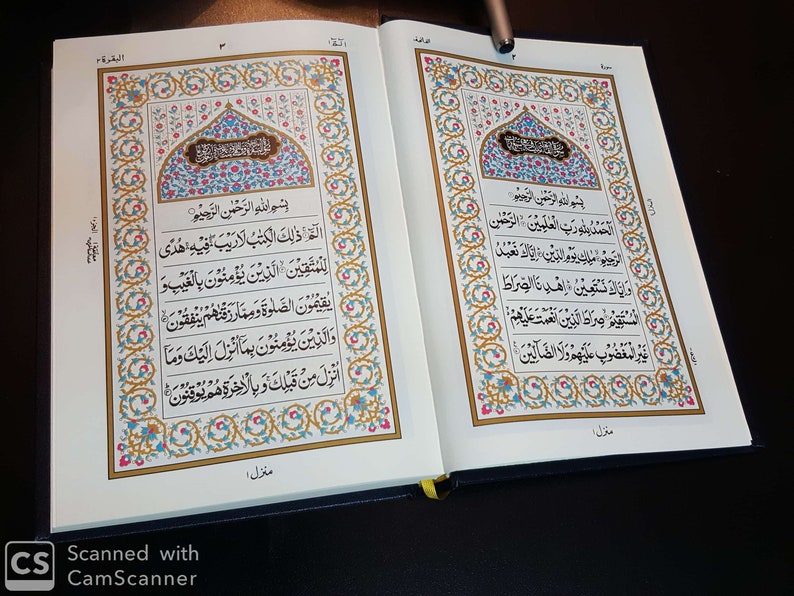 سورة
٢
الفاتحة
بِسْمِ اللهِ الرَّحْمٰنِ الرَّحِيْمِ
اَلْحَمْدُ لِلّٰهِ رَبِّ الْعٰلَمِيْنَ ۙ الرَّحْمٰنِ
الرَّحِيْمِ ۙ مٰلِكِ يَوْمِ الدِّيْنِ ؕ اِيَّاكَ نَعْبُدُ
وَ اِيَّاكَ نَسْتَعِيْنُ ؕ اِهْدِنَا الصِّرَاطَ
الْمُسْتَقِيْمَ ۙ صِرَاطَ الَّذِيْنَ اَنْعَمْتَ عَلَيْهِمْ
غَيْرِ الْمَغْضُوْبِ عَلَيْهِمْ وَلَا الضَّآلِّيْنَ
منزل ١
الٓمّٓ ١
٣
البقرة ٢
بِسْمِ اللهِ الرَّحْمٰنِ الرَّحِيْمِ
الٓمّٓ ۚ ذٰلِكَ الْكِتٰبُ لَا رَيْبَ ۛ فِيْهِ ۛ هُدًى
لِّلْمُتَّقِيْنَ ۙ الَّذِيْنَ يُؤْمِنُوْنَ بِالْغَيْبِ وَ
يُقِيْمُوْنَ الصَّلٰوةَ وَ مِمَّا رَزَقْنٰهُمْ يُنْفِقُوْنَ ۙ
وَالَّذِيْنَ يُؤْمِنُوْنَ بِمَاۤ اُنْزِلَ اِلَيْكَ وَمَاۤ
اُنْزِلَ مِنْ قَبْلِكَ ۚ وَ بِالْاٰخِرَةِ هُمْ يُوْقِنُوْنَ ؕ
منزل ١
CS Scanned with
CamScanner